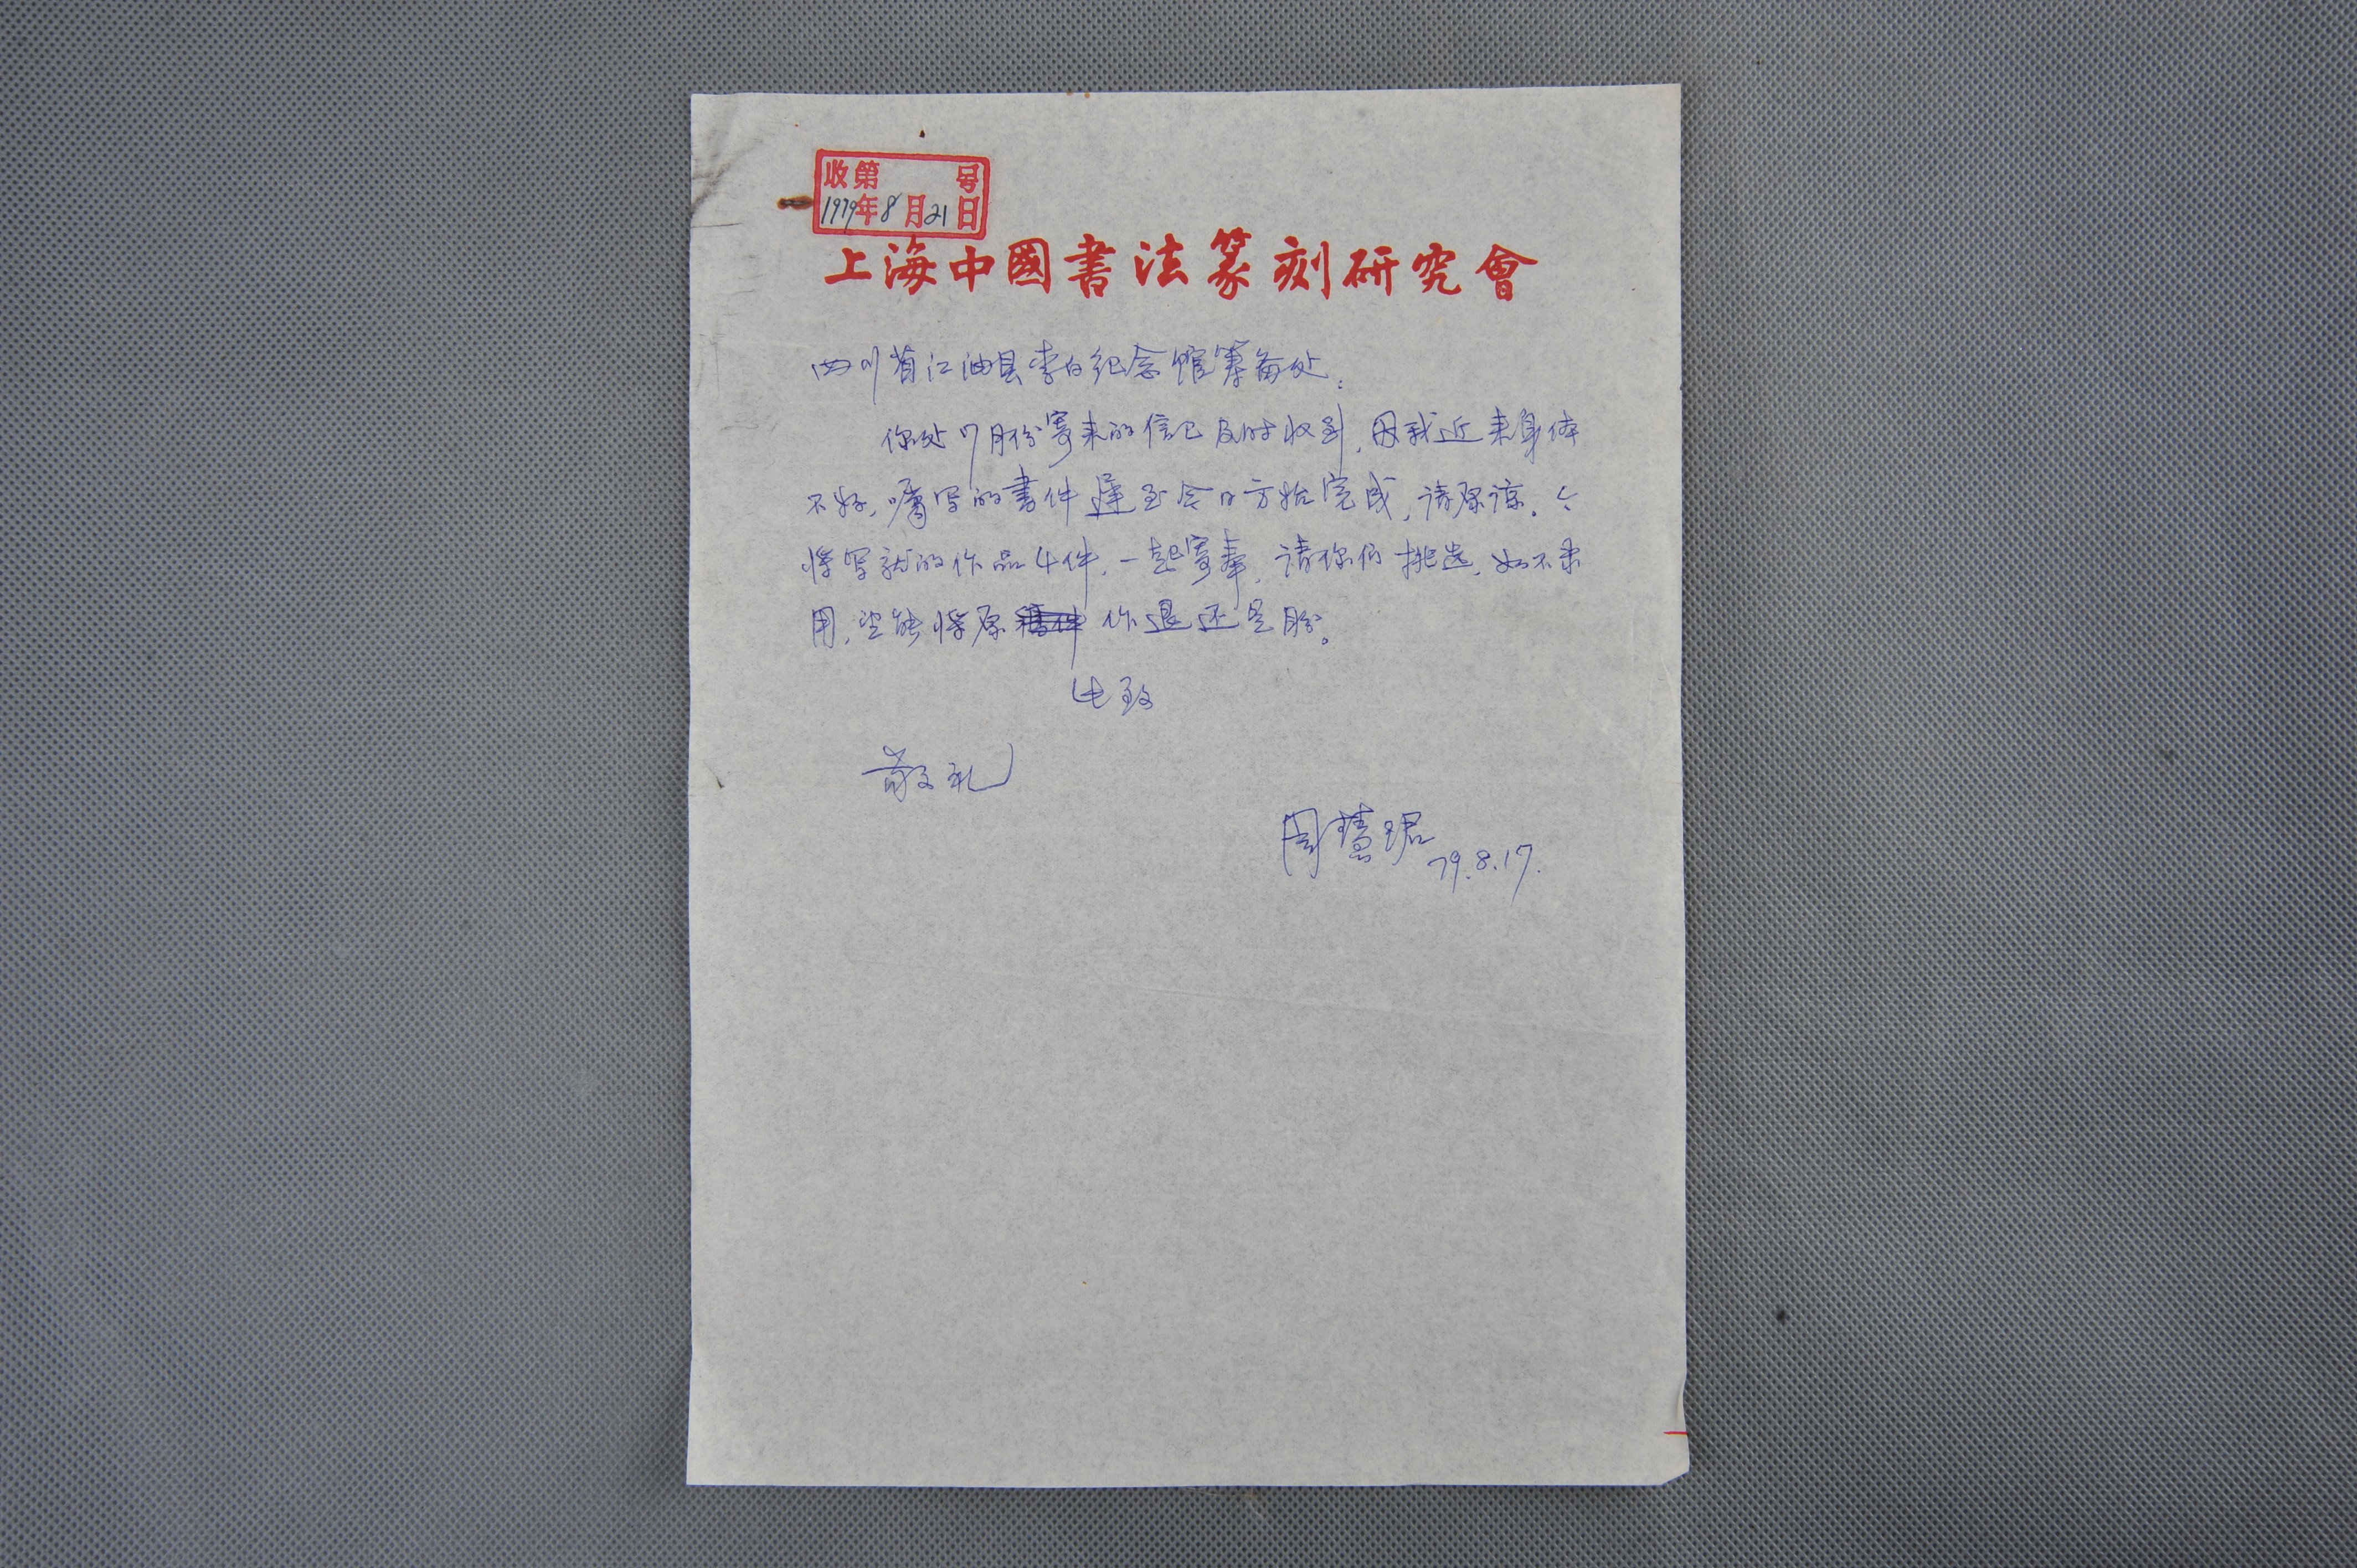 收第 号
1979年8月21日
上海中國書法篆刻研究會
四川省江油县李白纪念馆筹备处:
你处7月份寄来的信已及时收到,因我近来身体
不好,嘱写的书件遅至今日方始完成,请原谅。今
将写就的作品4件,一起寄奉,请你们挑选,如不采
用,望能将原作退还是盼。
此致
敬礼
周慧珺 79.8.17.